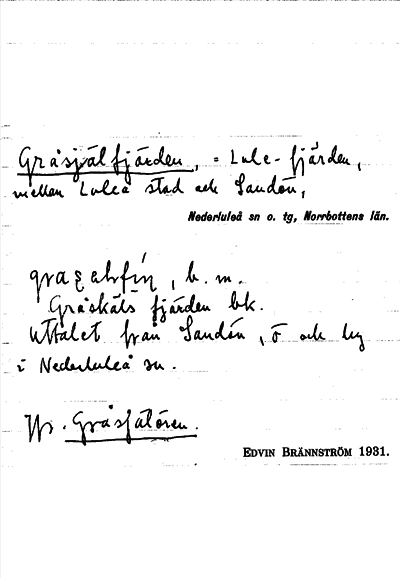 Gråsjälfjärden, = Lule-fjärden,
mellan Luleå stad och Sandön,
Nederluleå sn o. tg, Norrbottens län.
b. m.
Gråskäls fjärden bk.
Uttalet från Sandön, ö och by
i Nederluleå sn.
Jfr. Gråsjälören.
EDVIN BRÄNNSTRÖM 1931.